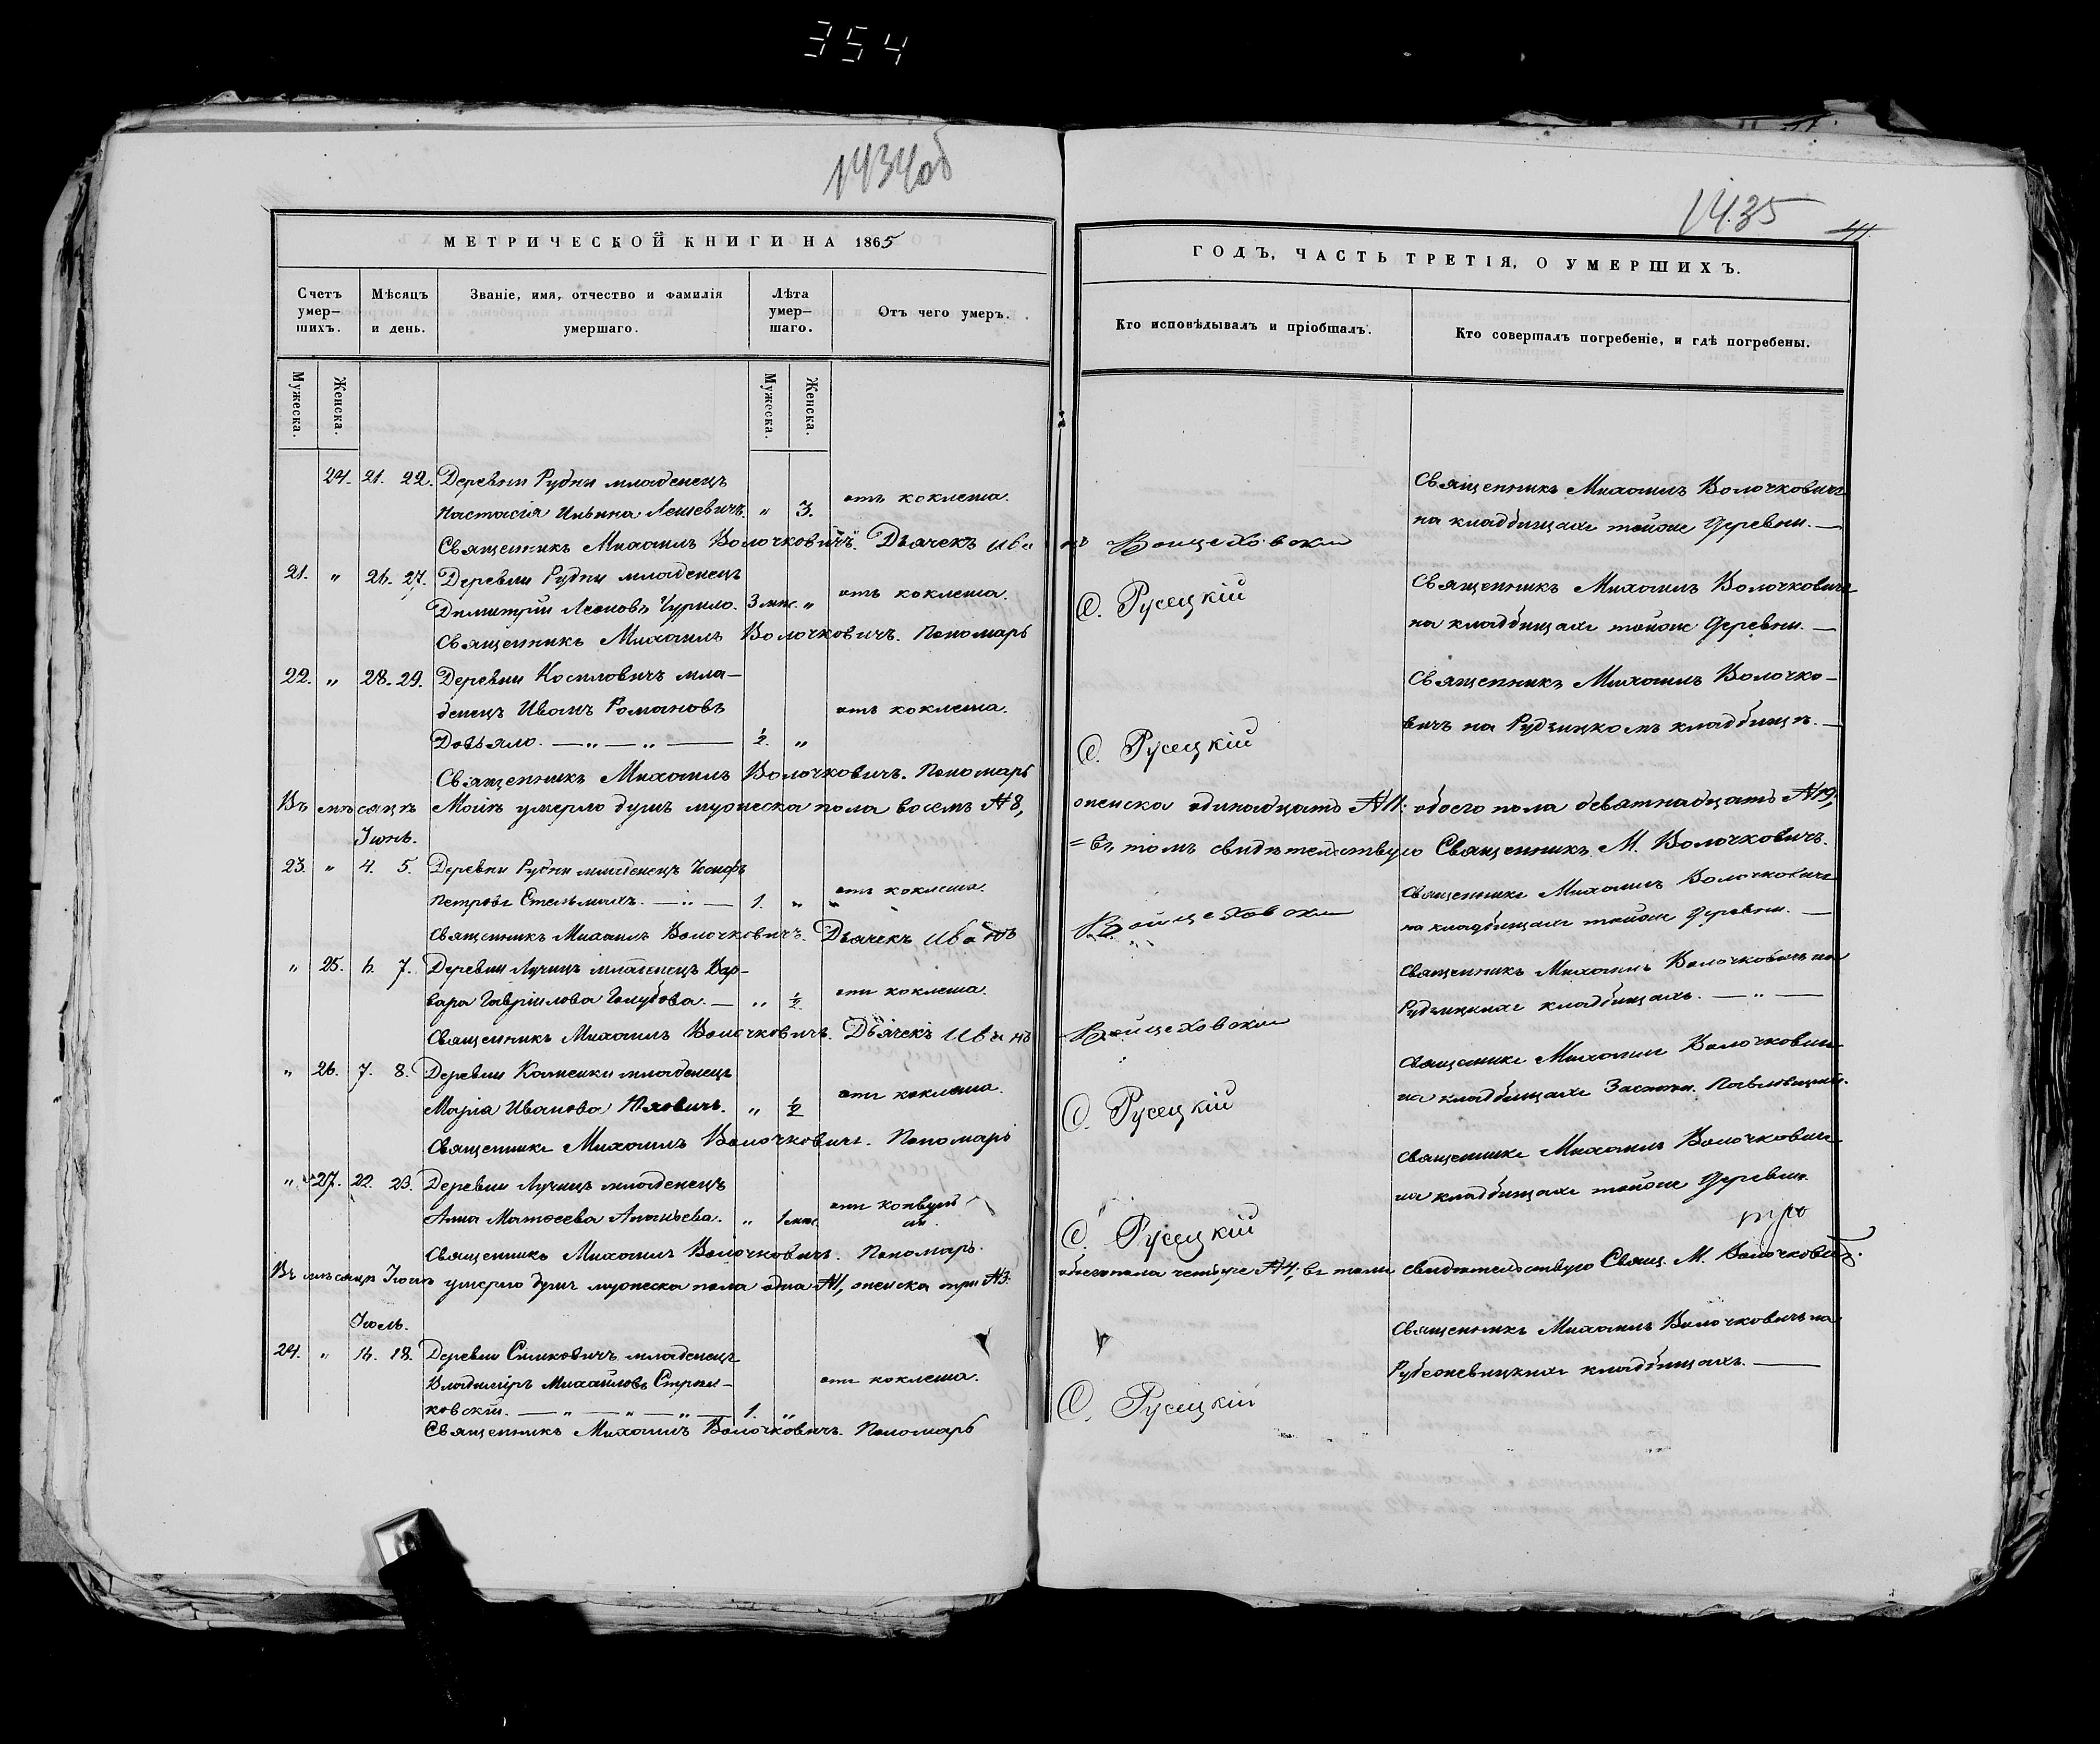 354
1434об
МЕТРИЧЕСКОЙ КНИГИ НА 1865
Счетъ умер-
шихъ.
Мѣсяцъ
и день.
Званіе, имя, отчество и фамилія
умершаго.
Лѣта
умер-
шаго.
Отъ чего умеръ.
Мужеска.
Женска.
Мужеска.
Женска.
24. 21. 22. Деревни Рудни младенецъ
Настасія Ильина Лешевичъ. " 3. отъ коклюша.
Священникъ Михаилъ Волочковичъ. Дьячекъ Иванъ
21. " 26. 27. Деревни Рудни младенецъ
Димитрій Леоновъ Чурило. 3 мѣс. " отъ коклюша.
Священникъ Михаилъ Волочковичъ. Пономарь
22. " 28. 29. Деревни Косиловичъ мла-
денецъ Иванъ Романовъ отъ коклюша.
Довьяло. — " — " — ½. "
Священникъ Михаилъ Волочковичъ. Пономарь
Въ мѣсяцѣ Маіѣ умерло душъ мужеска пола восемь №8,
Іюнь.
23. " 4. 5. Деревни Рудни младенецъ Іосифъ
Петровъ Стельмахъ. — " — 1. " отъ коклюша.
Священникъ Михаилъ Волочковичъ. Дьячекъ Иванъ
" 25. 6. 7. Деревни Лучицъ младенецъ Вар-
вара Гавріилова Голубова. — " ½ отъ коклюша.
Священникъ Михаилъ Волочковичъ. Дьячекъ Иванъ
" 26. 7. 8. Деревни Каменки младенецъ
Марія Иванова " ½ отъ коклюша.
Священникъ Михаилъ Волочковичъ. Пономарь
" 27. 22. 23. Деревни Лучицъ младенецъ
Анна Матѳеева Ананьева. " 1 мѣс. отъ конвульсіи.
Священникъ Михаилъ Волочковичъ. Пономарь.
Въ мѣсяцѣ Іюнѣ умерло душъ мужеска пола одна №1, женска три №3.
Іюль.
24. " 16. 18. Деревни Симковичъ младенецъ
Владиміръ Михайловъ отъ коклюша.
ковскій. — " — " — " — 1. "
Священникъ Михаилъ Волочковичъ. Пономарь
1435
41
ГОДЪ, ЧАСТЬ ТРЕТІЯ, О УМЕРШИХЪ.
Кто исповѣдывалъ и пріобщалъ.
Кто совершалъ погребеніе, и гдѣ погребены.
Священникъ Михаилъ Волочковичъ
на кладбищахъ тойже деревни. —
Войцеховски
Священникъ Михаилъ Волочковичъ
О. Русецкій
на кладбищахъ тойже деревни. —
Священникъ Михаилъ Волочко-
вичъ на Рудзицкомъ кладбищѣ. —
О. Русецкій
женска одинадцать №11. обоего пола девятнадцать №19,
= въ томъ свидѣтельствую Священникъ М. Волочковичъ.
Священникъ Михаилъ Волочковичъ
Войцеховски
на кладбищахъ тойже деревни. —
Священникъ Михаилъ Волочковичъ на
Рудзицкихъ кладбищахъ. — " —
Войцеховски
Священникъ Михаилъ Волочковичъ
на кладбищахъ Застѣн.
О. Русецкій
Священникъ Михаилъ Волочковичъ
на кладбищахъ тойже деревни.
О. Русецкій
обоего пола четыре №4; въ томъ свидѣтельствую Свящ. М. Волочковичъ.
Священникъ Михаилъ Волочковичъ на
Рубежевицкихъ кладбищахъ. —
О. Русецкій